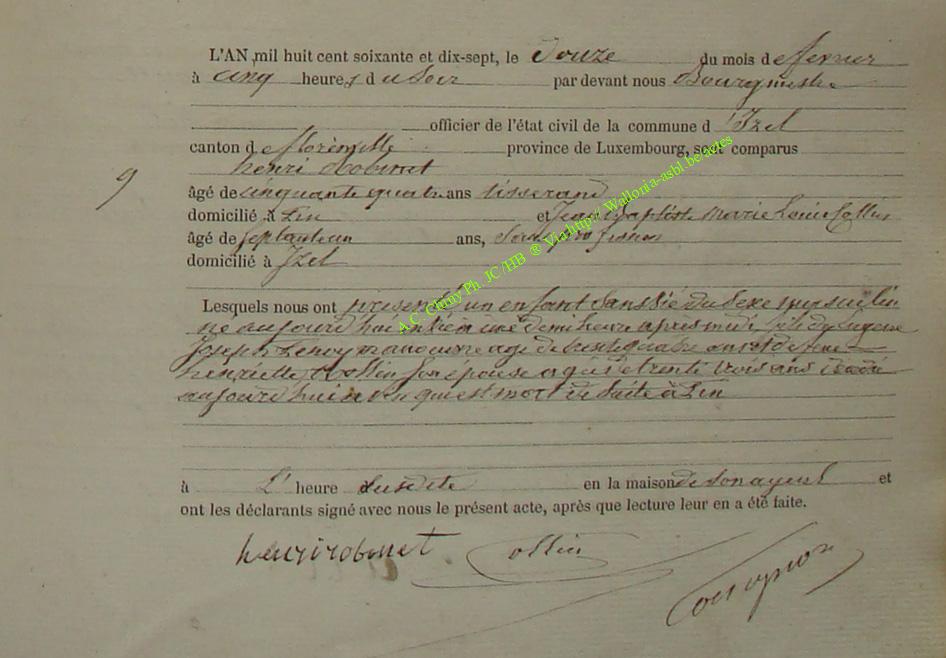 L'AN mil huit cent soixante et dix-sept, le Douze du mois de fevrier
à cinq heures du Soir par devant nous Bourgmestre
officier de l'état civil de la commune d'Izel
canton de florenville province de Luxembourg, sont comparus
henri Robinet
9
âgé de cinquante quatre ans tisserand
domicilié à Pin et Jean Baptiste Marie Louis Collin
âgé de Septante un ans, Sans profession
domicilié à Izel
Lesquels nous ont présenté un enfant Sans vie du Sexe masculin
né aujourd'hui à une demi heure apres midi, fils d'Eugene
Joseph manœuvre agé de trente quatre ans et de
henriette Collin Son épouse agée de trente trois ans
aujourd'hui qui est mort de Suite à Pin
à L' heure Susdite en la maison de Son ayeul et
ont les déclarants signé avec nous le présent acte, après que lecture leur en a été faite.
henri robinet Collin
A.C. Chiny Ph. JC/HB ® Via http:// Wallonia-asbl.be/actes